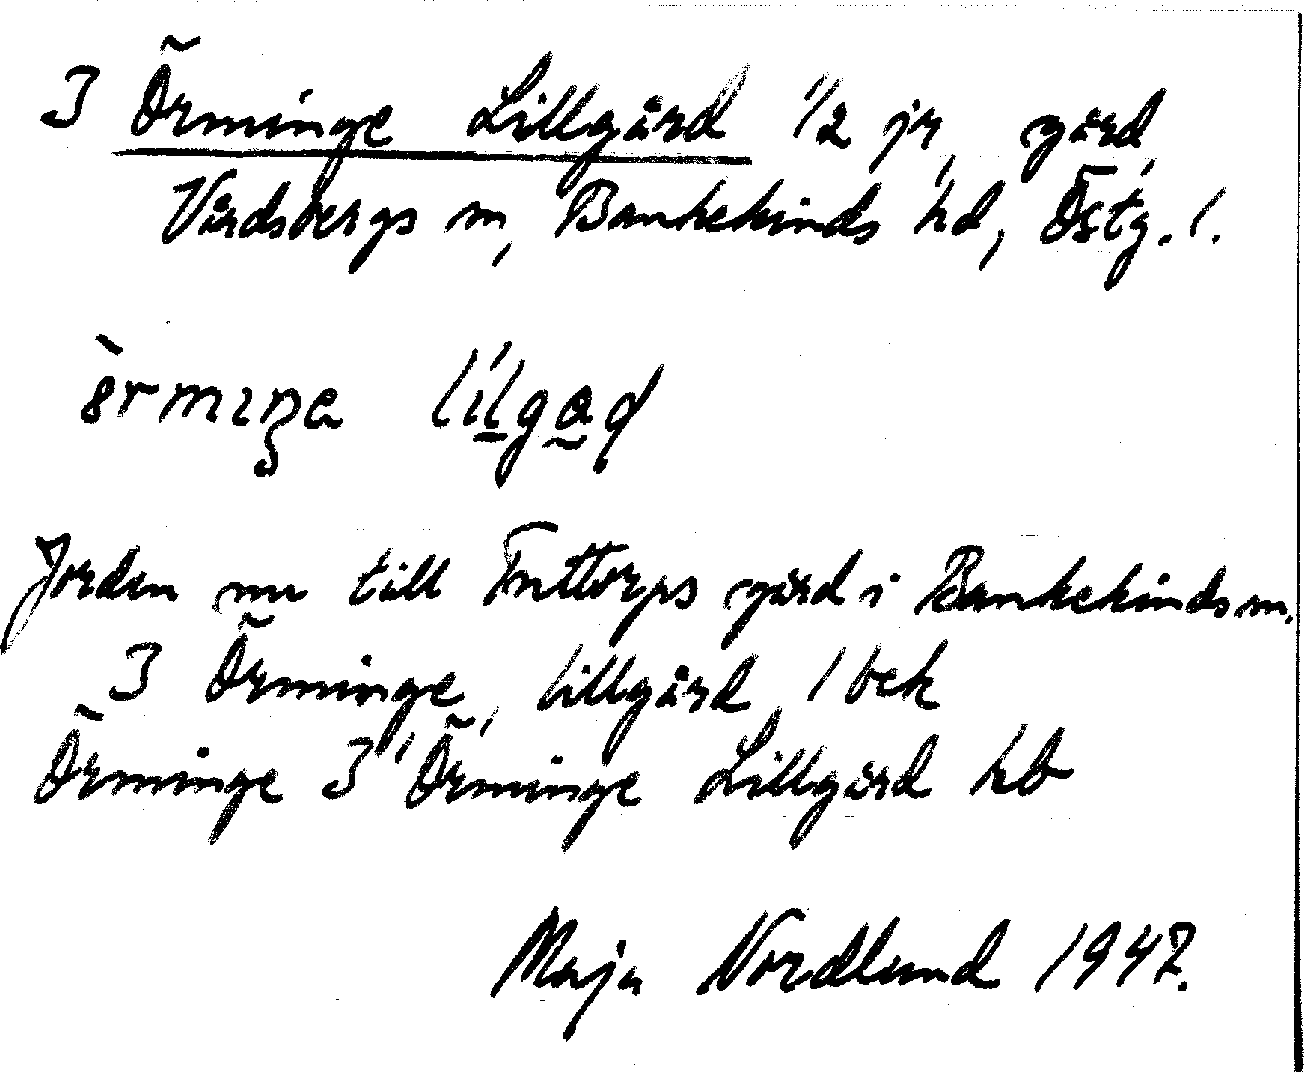 3 Örminge Lillgård 1/2 jr, gård,
Vårdsbergs sn, Bankekinds hd, Östg. l.
Jorden nu till Fnttorps gård i Bankekinds sn.
3 Örminge, Lillgård, 1 bek
Örminge 3, Örminge Lillgård hb
Maja Nordlund 1947.